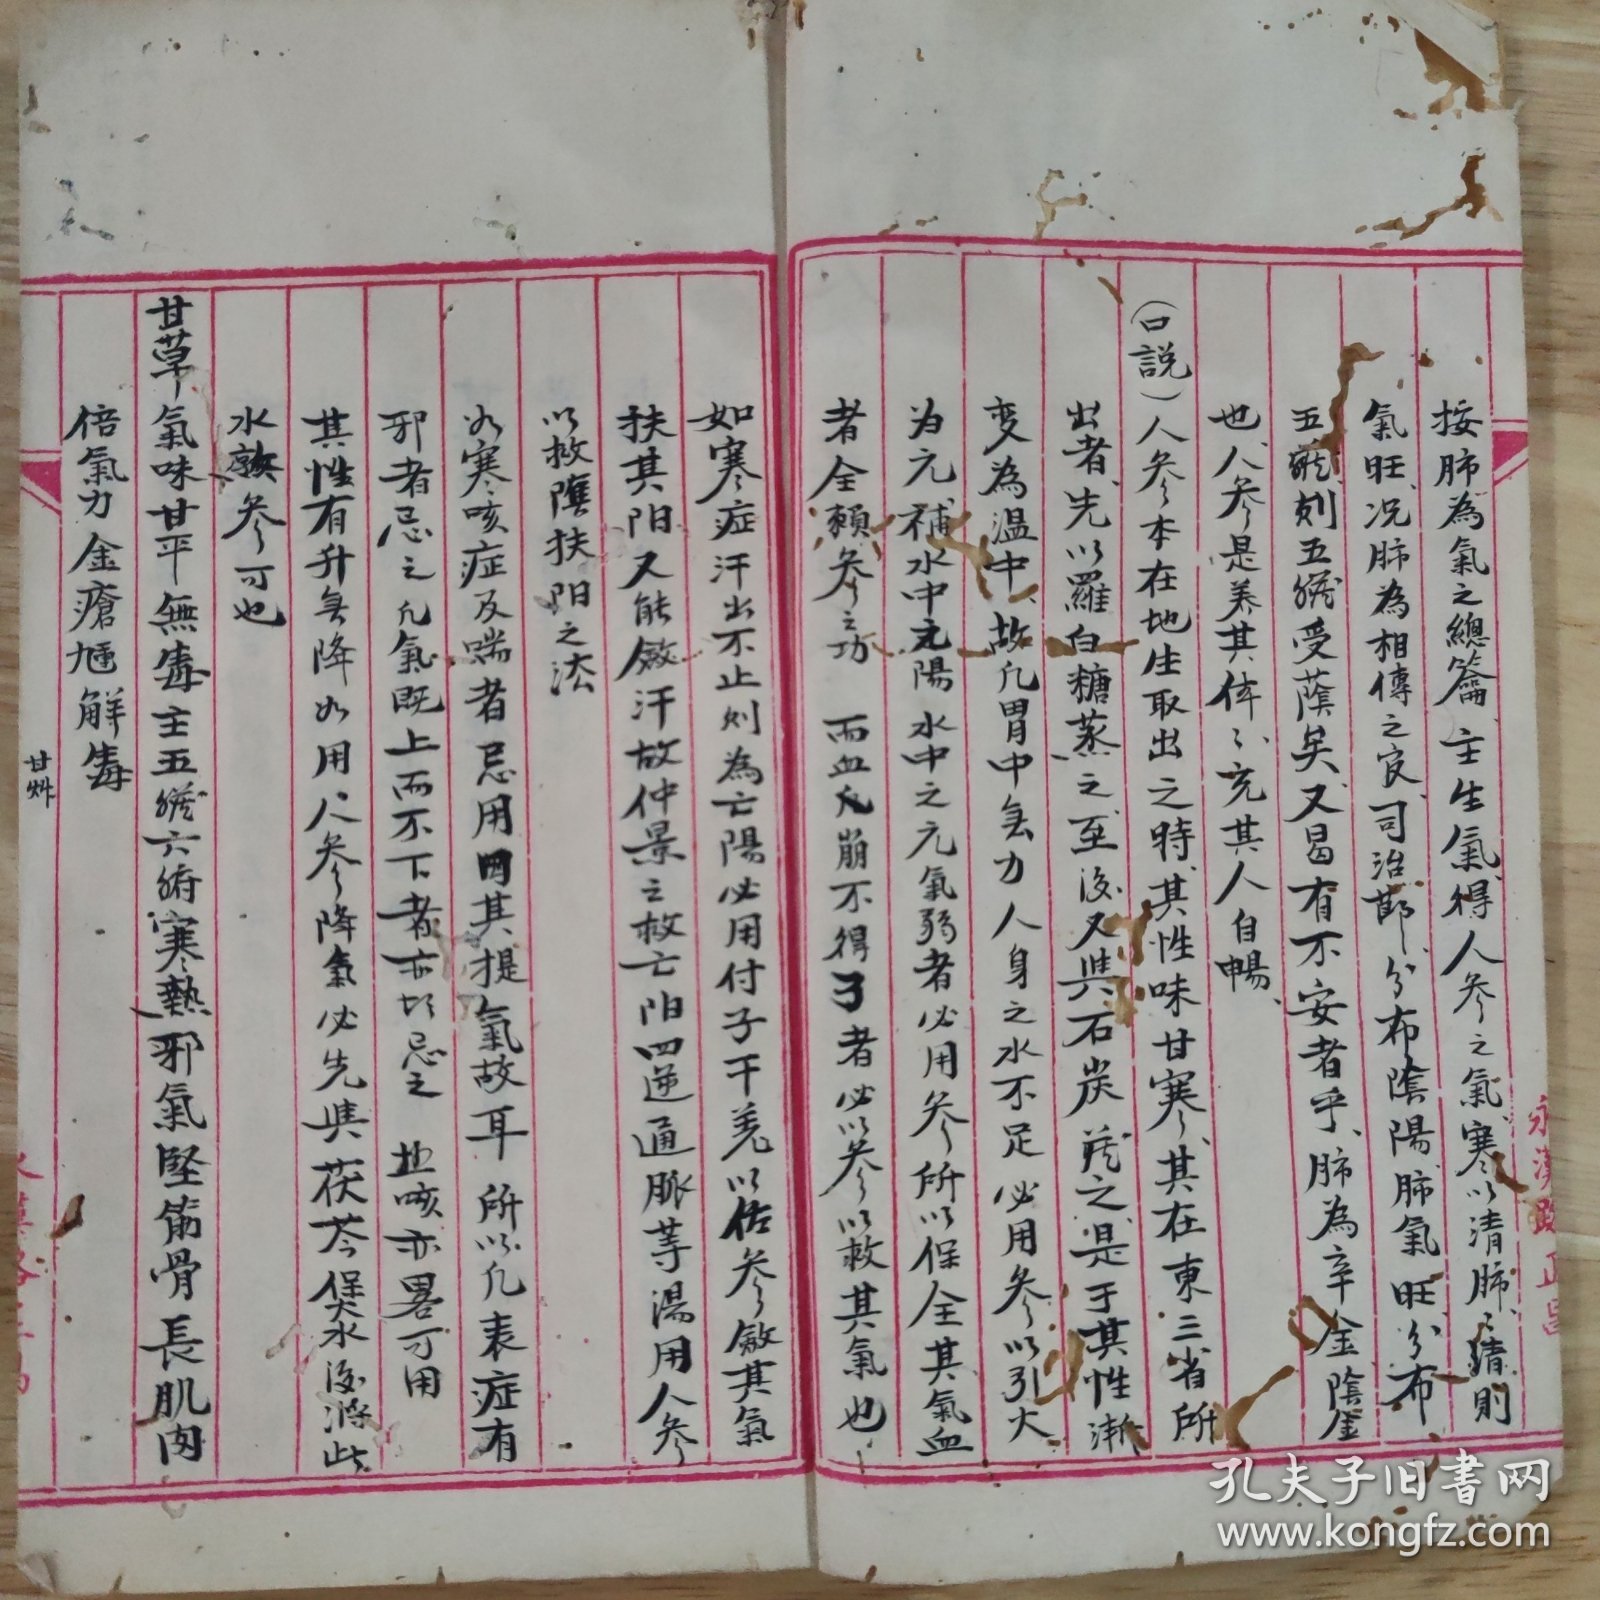 按肺為氣之總籥、主生氣、得人參之氣、寒以清肺、〻清則
氣旺、况肺為相傅之官、司治節、分布陰陽、肺氣旺、分布
五臟、則五臟受蔭矣、又曷有不安者乎、肺為辛金、陰金
也、人參是養其体、〻充其人自暢、
(口説)人參本在地生取出之時、其性味甘寒、其在東三省所
出者、先以羅白糖蒸之、至後又與石炭藏之、是于其性漸
变為溫中、故凡胃中無力人身之水不足必用參以引大
为元補水中元陽水中之元氣弱者必用參所以保全其氣血
者全賴參之功 而血凡崩不得了者必以參以救其氣也
如寒症汗出不止則為亡陽必用付子干羌以佐參斂其氣
扶其阳又能斂汗故仲景之救亡阳四逆通脈等湯用人參
以救陰扶阳之法
如寒咳症及喘者忌用因其提氣故耳 所以凡表症有
邪者忌之凡氣既上而不下者亦切忌之 虚咳亦畧可用
其性有升無降如用人參降氣必先與茯苓煲水後將此
水燉參可也
甘草氣味甘平無毒主五臟六腑寒熱邪氣堅筋骨長肌肉
倍氣力金瘡尰解毒
甘艸
永漢路正昌
孔夫子旧书网
www.kongfz.com